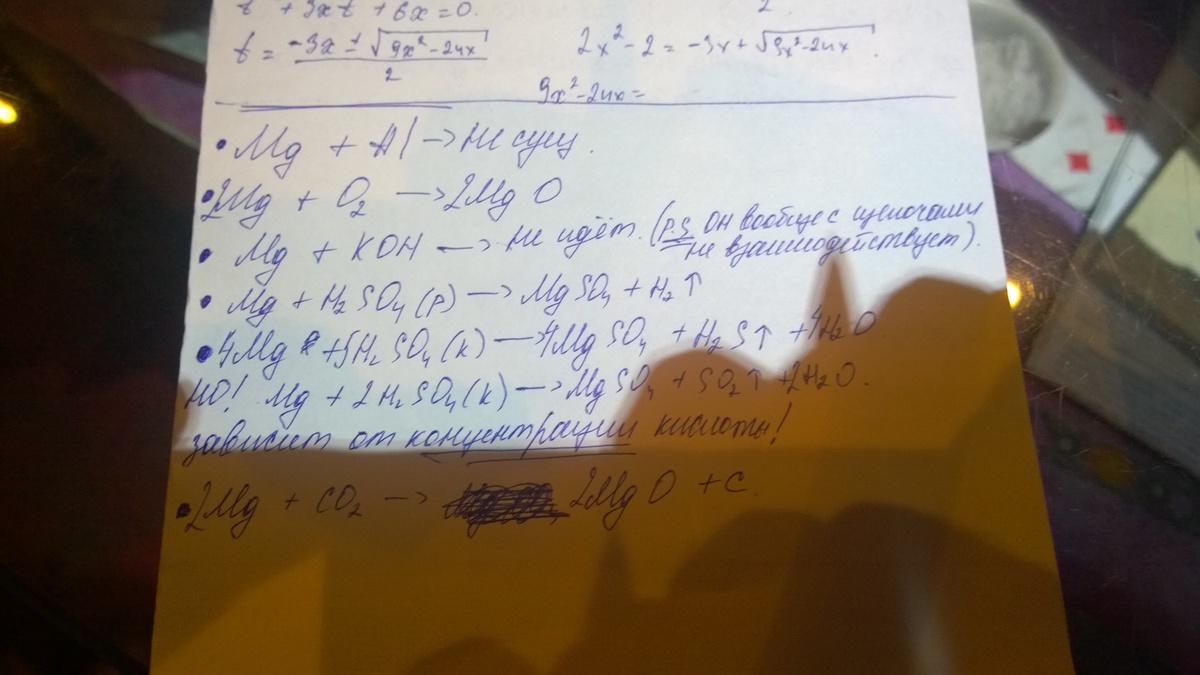 t² + 3xt + 6x = 0.
2
t = -3x ± √9x² - 24x / 2
2x² - 2 = -3x + √9x² - 24x.
9x² - 24x =
• Mg + Al → Не сущ.
• 2Mg + O₂ → 2MgO
• Mg + KOH → не идёт. (P.S. он вообще с щелочами
не взаимодействует).
• Mg + H₂SO₄(р) → MgSO₄ + H₂↑
• 4Mg + 5H₂SO₄(к) → 4MgSO₄ + H₂S↑ + 4H₂O
НО! Mg + 2H₂SO₄(к) → MgSO₄ + SO₂↑ + 2H₂O.
зависит от концентрации кислоты!
• 2Mg + CO₂ → 2MgO + C.